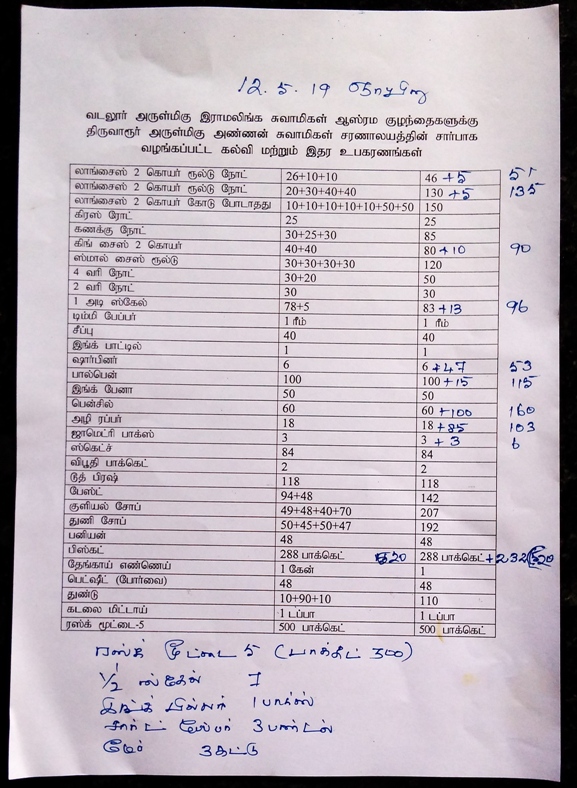 12.5.19 ஞாயிறு
வடலூர் அருள்மிகு இராமலிங்க சுவாமிகள் ஆஸ்ரம குழந்தைகளுக்கு
திருவாரூர் அருள்மிகு அண்ணன் சுவாமிகள் சரணாலயத்தின் சார்பாக
வழங்கப்பட்ட கல்வி மற்றும் இதர உபகரணங்கள்
லாங்சைஸ் 2 கொயர் ரூல்டு நோட் 26+10+10 46 +5 51
லாங்சைஸ் 2 கொயர் ரூல்டு நோட் 20+30+40+40 130 +5 135
லாங்சைஸ் 2 கொயர் கோடு போடாதது 10+10+10+10+10+50+50 150
கிரஸ் ரோட் 25 25
கணக்கு நோட் 30+25+30 85
கிங் சைஸ் 2 கொயர் 40+40 80 +10 90
ஸ்மால் சைஸ் ரூல்டு 30+30+30+30 120
4 வரி நோட் 30+20 50
2 வரி நோட் 30 30
1 அடி ஸ்கேல் 78+5 83 +13 96
டிம்மி பேப்பர் 1 ரீம் 1 ரீம்
சீப்பு 40 40
இங்க் பாட்டில் 1 1
ஷார்பினர் 6 6 +47 53
பால்பென் 100 100 +15 115
இங்க் பேனா 50 50
பென்சில் 60 60 +100 160
அழி ரப்பர் 18 18 +85 103
ஜாமெட்ரி பாக்ஸ் 3 3 +3 6
ஸ்கெட்ச் 84 84
விபூதி பாக்கெட் 2 2
டூத் பிரஷ் 118 118
பேஸ்ட் 94+48 142
குளியல் சோப் 49+48+40+70 207
துணி சோப் 50+45+50+47 192
பனியன் 48 48
பிஸ்கட் 288 பாக்கெட் 520 288 பாக்கெட் +232 520
தேங்காய் எண்ணெய் 1 கேன் 1
பெட்ஷீட் (போர்வை) 48 48
துண்டு 10+90+10 110
கடலை மிட்டாய் 1 டப்பா 1 டப்பா
ரஸ்க் மூட்டை-5 500 பாக்கெட் 500 பாக்கெட்
ரஸ்க் மூட்டை 5 (பாக்கெட் 300)
1/2 ஸ்கேல் 7
இங்க் பில்லர் 1 பாக்ஸ்
சார்ட் பேப்பர் 3 பண்டல்
3 கட்டு